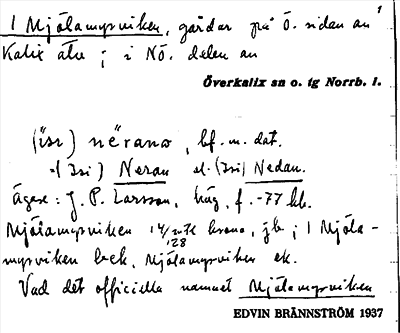 1
1 Mjölamyrviken, gårdar på Ö. sidan av
Kalix älv; i NÖ. delen av
Överkalix sn o. tg Norrb. l.
(isi) nërano, bf. m. dat.
(isi) Neran el. (isi) Nedan.
Ägare: J. P. Larsson, häg, f. -77 hb.
Mjölamyrviken krono, jb; 1 Mjöla-
myrviken beck, Mjölamyrviken ek.
Vad det officiella namnet Mjölamyrviken
EDVIN BRÄNNSTRÖM 1937